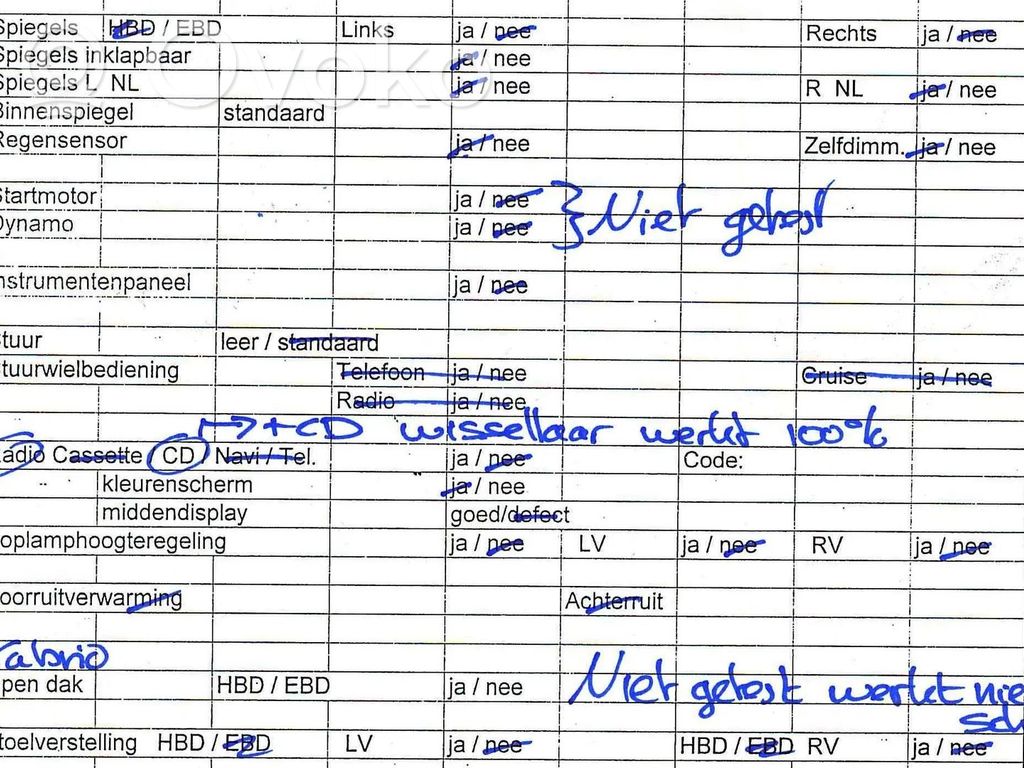 Spiegels HBD / EBD Links ja / nee Rechts ja / nee
Spiegels inklapbaar ja / nee
Spiegels L NL ja / nee R NL ja / nee
Binnenspiegel standaard
Regensensor ja / nee Zelfdimm. ja / nee
Startmotor ja / nee
} Niet getest
Dynamo ja / nee
nstrumentenpaneel ja / nee
tuur leer / standaard
tuurwielbediening Telefoon ja / nee Cruise ja / nee
Radio ja / nee
→ + CD wisselaar werkt 100%
adio Cassette CD / Navi / Tel. ja / nee Code:
kleurenscherm ja / nee
middendisplay goed/defect
oplamphoogteregeling ja / nee LV ja / nee RV ja / nee
oorruitverwarming Achterruit
Cabrio
pen dak HBD / EBD ja / nee Niet getest werkt nie
sch
toelverstelling HBD / EBD LV ja / nee HBD / EBD RV ja / nee
Ovoko